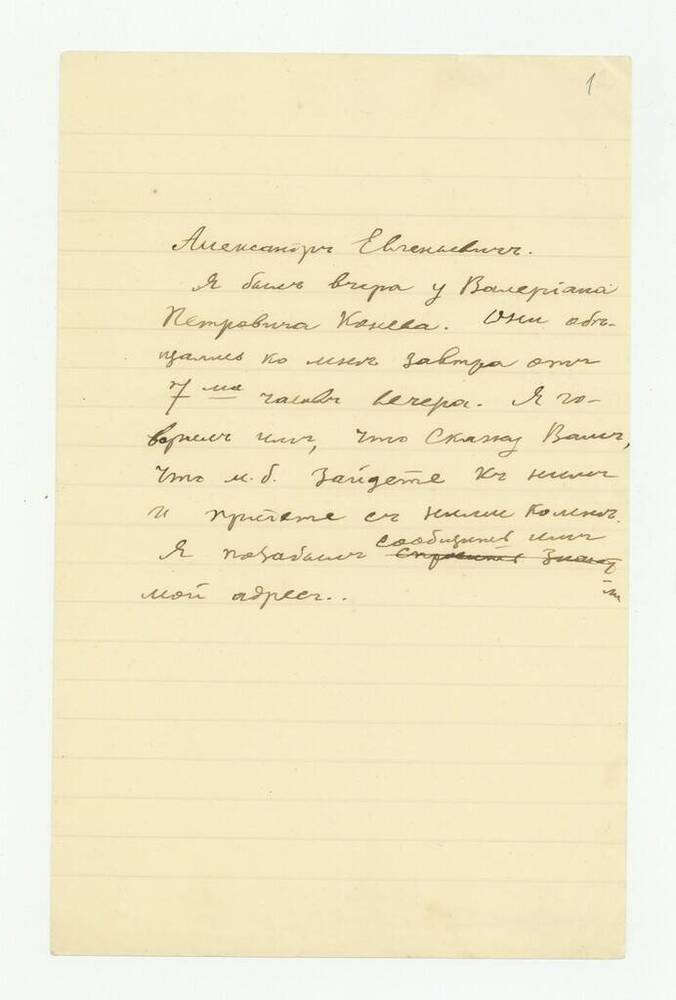 1
Александръ Евгеньевичъ.
Я былъ вчера у Валеріана
Петровича Конева. Они обѣ-
щались ко мнѣ завтра отъ
7 ми часовъ вечера. Я го-
ворилъ имъ, что скажу Вамъ,
что м.б. зайдете къ нимъ
и придете съ ними ко мнѣ.
сообщить имъ
Я позабылъ спросить знают
ли
мой адресъ..